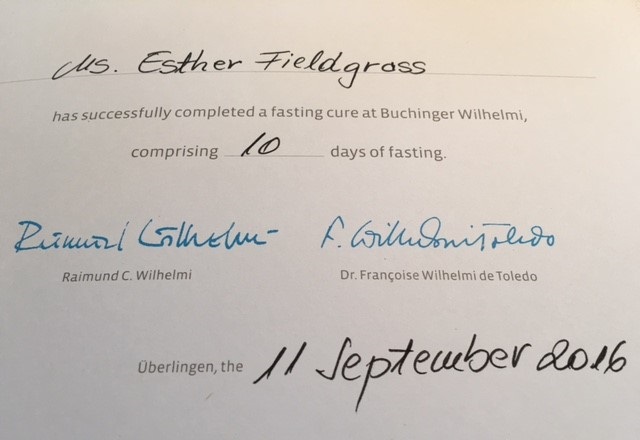 Ms. Esther Fieldgrass
has successfully completed a fasting cure at Buchinger Wilhelmi,
comprising 10 days of fasting.
Raimund Wilhelmi F. Wilhelmi Toledo
Raimund C. Wilhelmi Dr. Françoise Wilhelmi de Toledo
Überlingen, the 11 September 2016